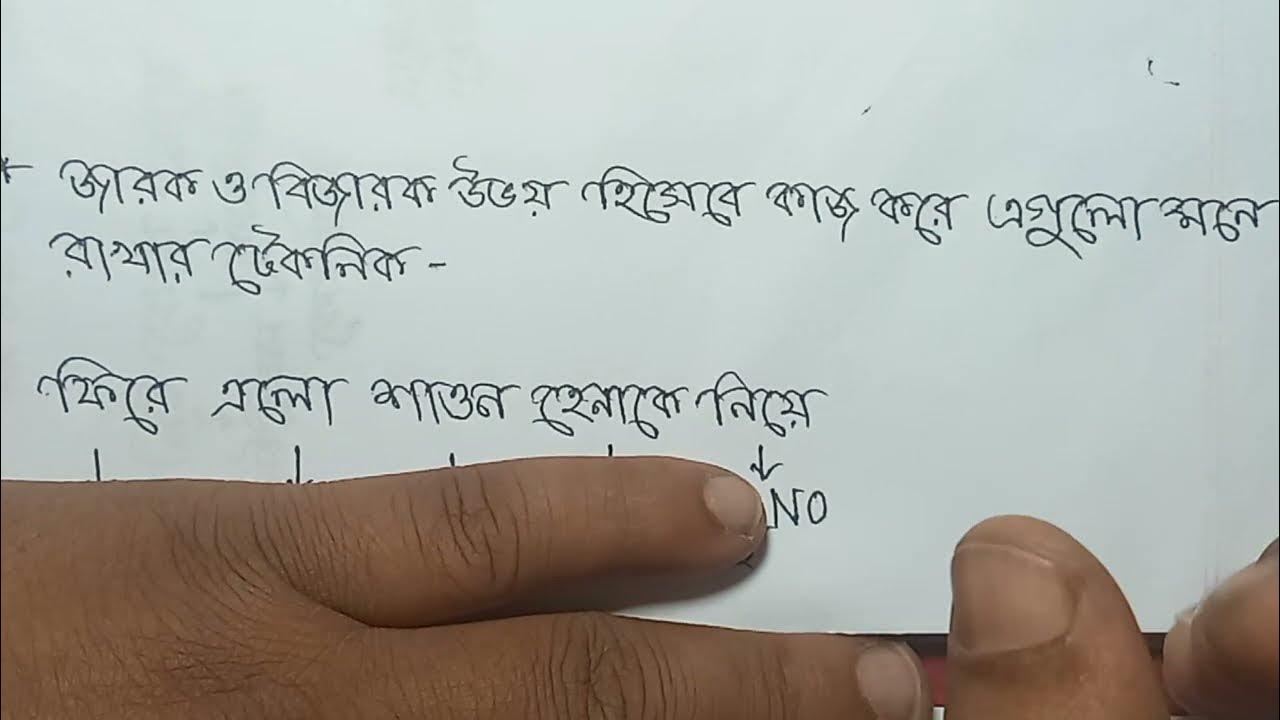 * জারক ও বিজারক উভয় হিসেবে কাজ করে এগুলো মনে
রাখার টেকনিক -
ফিরে এলো শাওন হেনাকে নিয়ে
NO